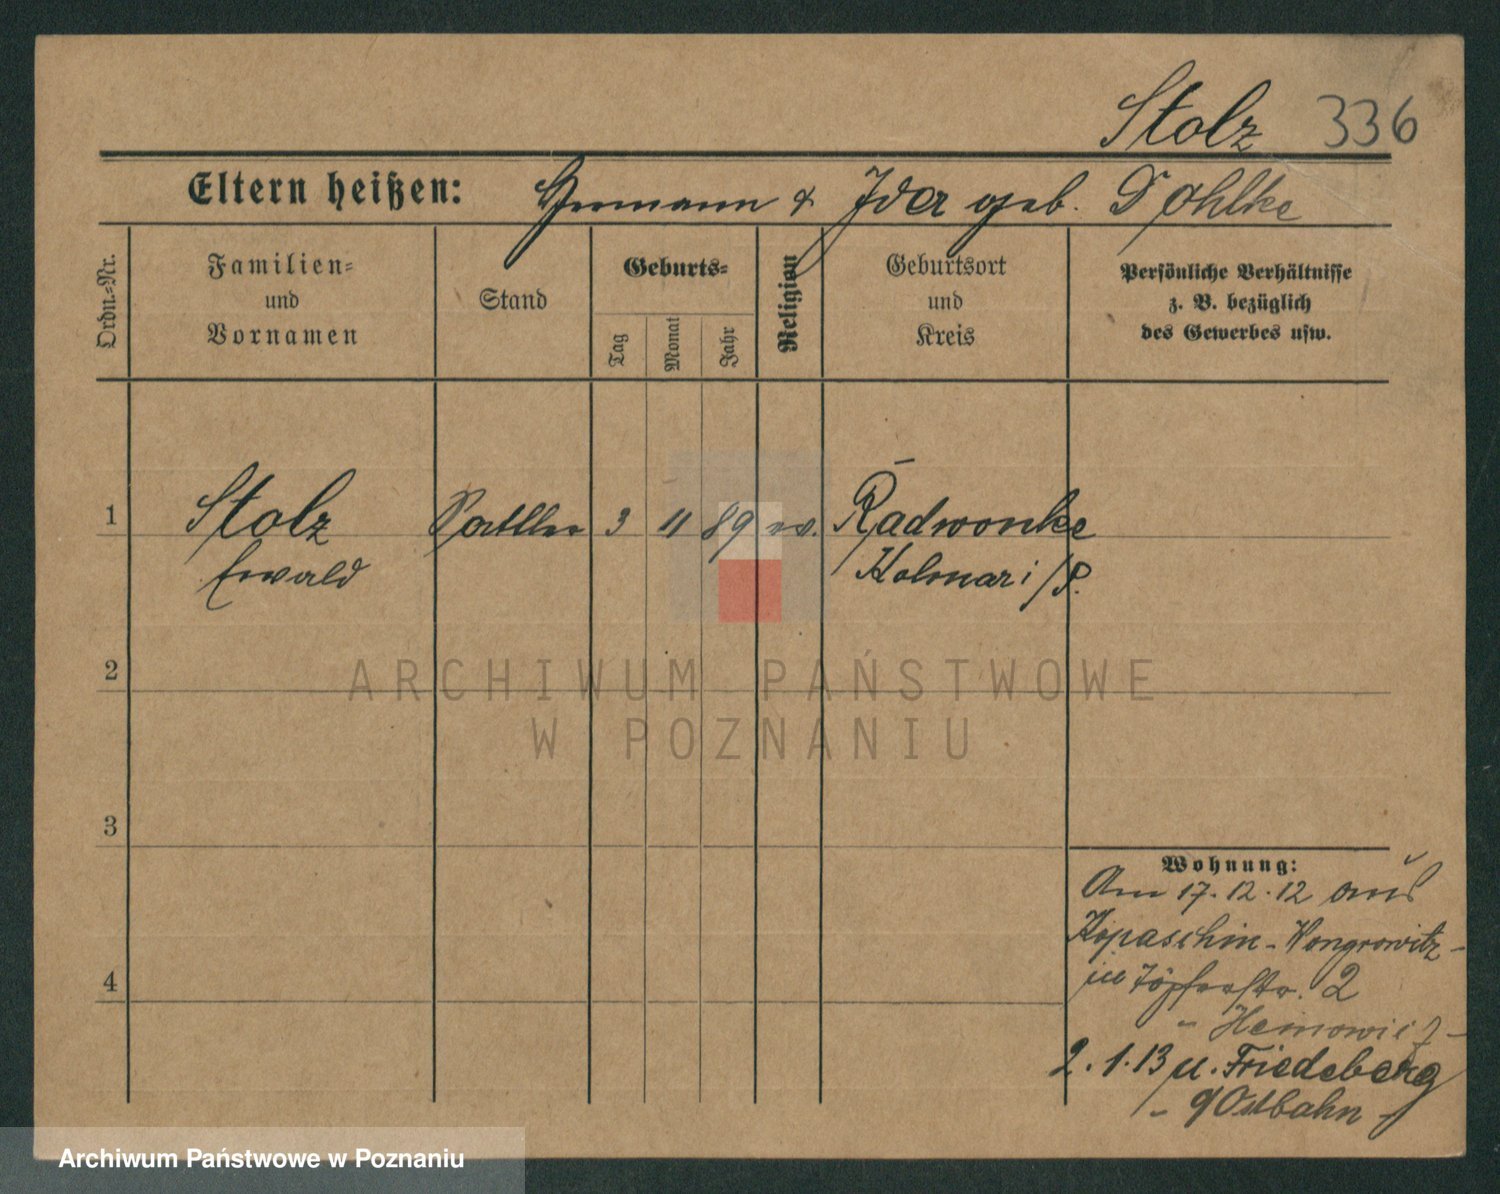 Stolz 336
Eltern heißen: Hermann & Ida geb. Dahlke
Ordn.=Nr.
Familien=
und
Vornamen
Stand
Geburts=
Tag
Monat
Jahr
Religion
Geburtsort
und
Kreis
Persönliche Verhältnisse
z. B. bezüglich
des Gewerbes usw.
1 Stolz Sattler 3 11 89 ev. Radwonke
Ewald Kolmar i/P.
2
ARCHIWUM PAŃSTWOWE
W POZNANIU
3
Wohnung:
Am 17.12.12 aus
Kopaschin-Wongrowitz-
in Töpferstr. 2
2.1.13 n. Friedeberg
- Ostbahn -
4
Archiwum Państwowe w Poznaniu